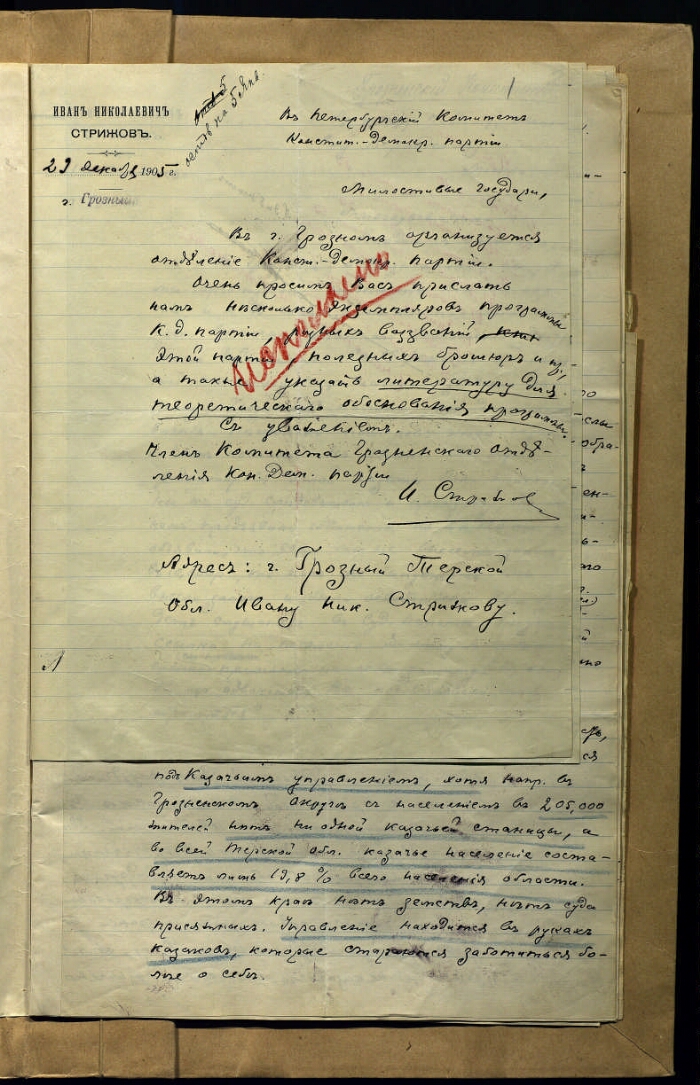 ИВАНЪ НИКОЛАЕВИЧЪ
СТРИЖОВЪ.
23 декабря 1905 г.
г. Грозный
1
Въ Петербургскій Комитетъ
Констит.-Демокр. партіи
Милостивые Государи,
Въ г. Грозномъ организуется
отдѣленіе Конст.-Демокр. партіи.
Очень просимъ Васъ прислать
намъ нѣсколько экземпляровъ программы
К. д. партіи воззваній
этой партіи полезныхъ брошюръ и пр.,
а также указать литературу для
теоретическаго обоснованія программы.
Съ уваженіемъ.
Членъ Комитета Грозненскаго отдѣ-
ленія Кон. Дем. партіи
И. Стрижов
Адресъ: г. Грозный Терской
Обл. Ивану Ник. Стрижову.
подъ Казачьимъ управленіемъ, хотя напр. въ
Грозненскомъ округѣ съ населеніемъ въ 205,000
жителей нѣтъ ни одной казачьей станицы, а
во всей Терской Обл. казачье населеніе соста-
вляетъ лишь 19,8% всего населенія области.
Въ этомъ краѣ нѣтъ земствъ, нѣтъ суда
присяжныхъ. Управленіе находится въ рукахъ
казаковъ, которые стараются заботиться бо-
лѣе о себѣ.